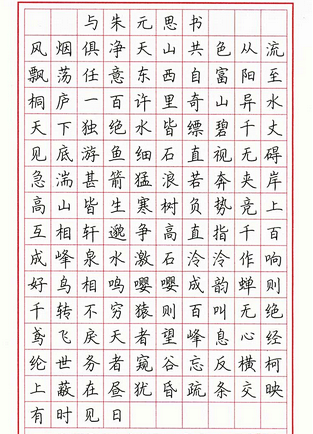 与朱元思书
风烟俱净天山共色从流
飘荡任意东西自富阳至
桐庐一百许里奇山异水
天下独绝水皆缥碧千丈
见底游鱼细石直视无碍
急湍甚箭猛浪若奔夹岸
高山皆生寒树负势竞上
互相轩邈争高直指千百
成峰泉水激石泠泠作响
好鸟相鸣嘤嘤成韵蝉则
千转不穷猿则百叫无绝
鸢飞戾天者望峰息心经
纶世务者窥谷忘反横柯
上蔽在昼犹昏疏条交映
有时见日